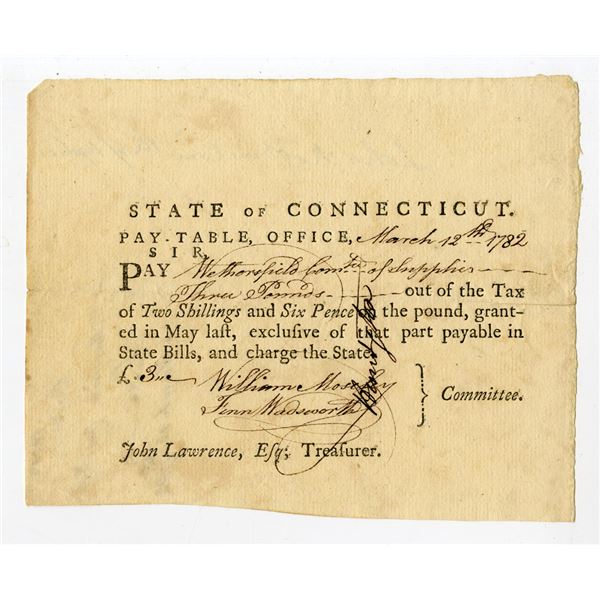 STATE OF CONNECTICUT.
PAY-TABLE, OFFICE, March 12th 1782
SIR,
PAY Wethersfield Comtee of Supplies
Three Pounds out of the Tax
of Two Shillings and Six Pence on the pound, grant-
ed in May laſt, excluſive of that part payable in
State Bills, and charge the State
£ 3
William Moseley
Fenn Wadsworth
Committee.
John Lawrence, Eſq; Treaſurer.